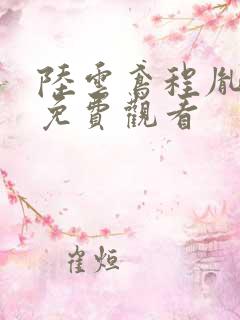 陸雲鸢程胤
免費觀看
崔烜